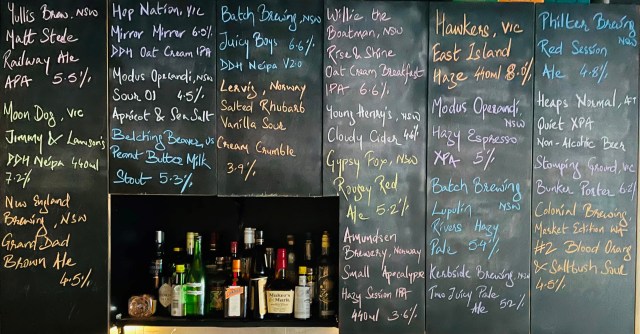 Yullis Brew, NSW
Matt Steele
Railway Ale
APA 5.5%
Moon Dog, VIC
Jimmy &
DDH Neipa 440ml
7.2%
New England
Brewing, NSW
Grand Dad
Brown Ale
4.5%
Hop Nation, VIC
Mirror Mirror 6.5%
DDH Oat Cream IPA
Modus Operandi, NSW
Sour 01 4.5%
Apricot & Sea Salt
Belching Beaver, US
Peanut Butter Milk
Stout 5.3%
Batch Brewing, NSW
Juicy Boys 6.6%
DDH Neipa V20
Lervig, Norway
Salted Rhubarb
Vanilla Sour
Cream Crumble
3.9%
Willie the
Boatman, NSW
Rise & Shine
Oat Cream Breakfast
IPA 6.6%
Young Henry's, NSW
Cloudy Cider 4.6%
Gypsy Fox, NSW
Red
Ale 5.2%
Amundsen
Brewery, Norway
Small Apocalypse
Hazy Session IPA
440ml 3.6%
Hawkers, VIC
East Island
Haze 440ml
Modus Operandi
NSW
Hazy Espresso
XPA 5%
Batch Brewing
NSW
Lupulin
Rivers Hazy
Pale 5.4%
Kerbside Brewing, NSW
Two Juicy Pale
Ale 5.2%
Philter Brewing
NSW
Red Session
Ale 4.8%
Heaps Normal, ACT
Quiet XPA
Non-Alcoholic Beer
Stomping Ground, VIC
Bunker Porter 6.2%
Colonial Brewing
Market Edition WA
#2 Blood Orang
& Saltbush Sour
4.5%
Maker's
Mark